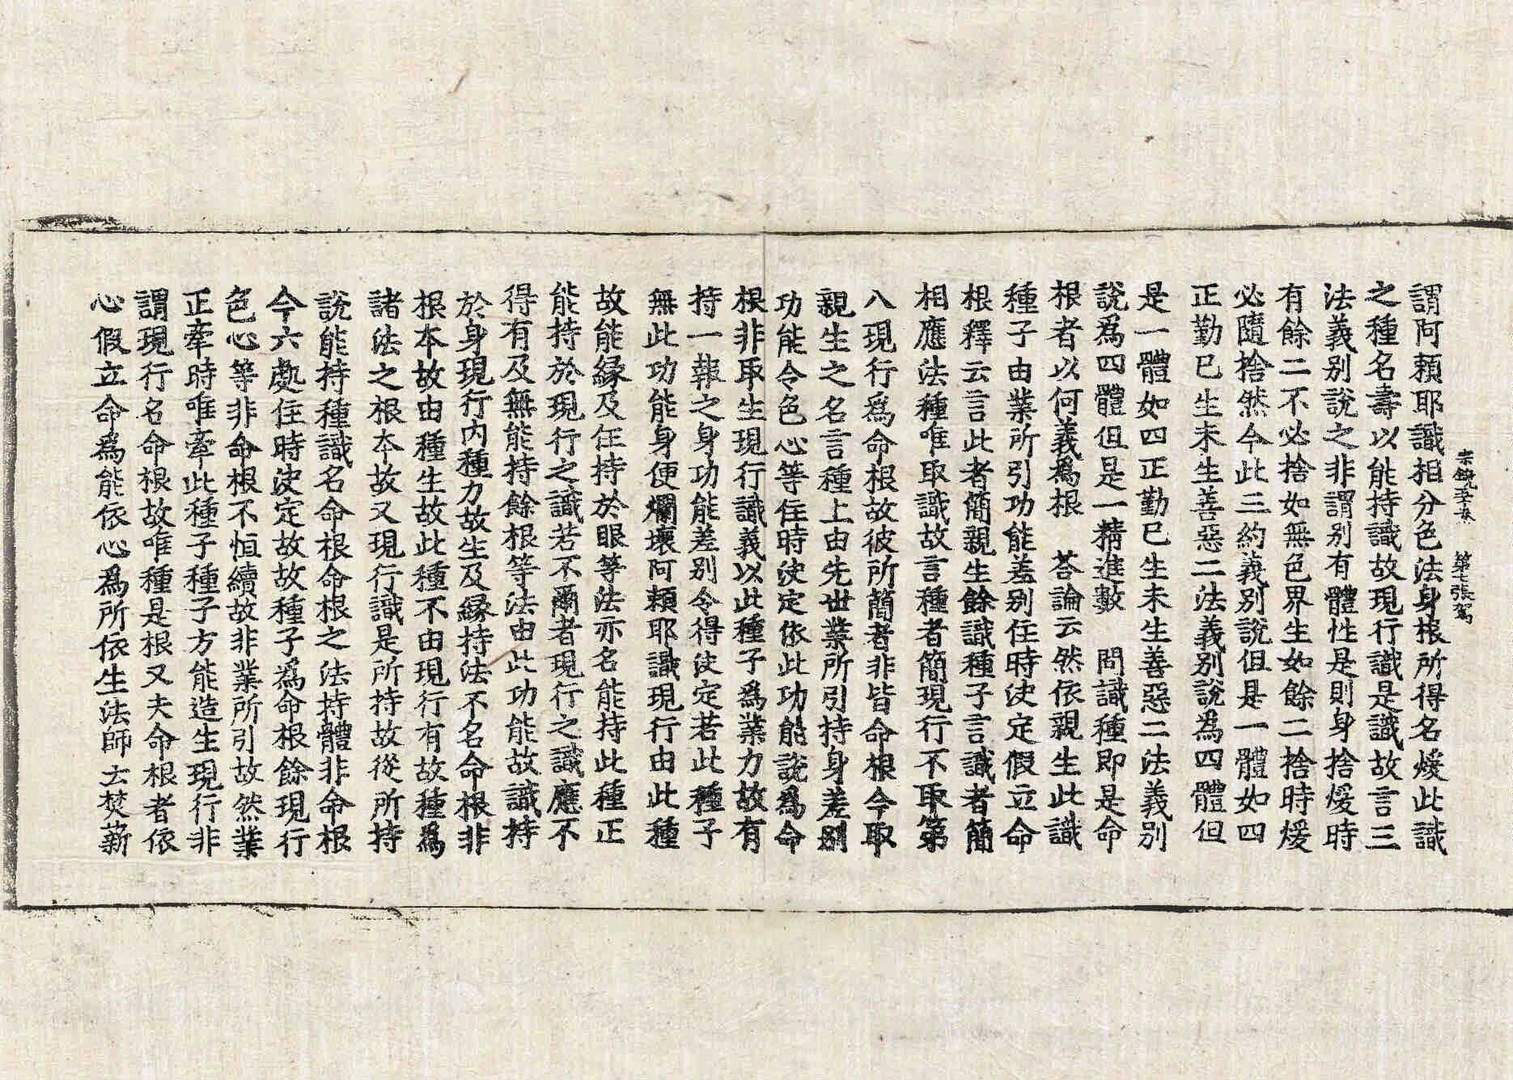 宗鏡 第七張 駕
謂阿賴耶識相分色法身根所得名煖此識
之種名壽以能持識故現行識是識故言三
法義別說之非謂別有體性是則身捨煖時
有餘二不必捨如無色界生如餘二捨時煖
必隨捨然今此三約義別說但是一體如四
正勤已生未生善惡二法義別說為四體但
是一體如四正勤已生未生善惡二法義別
說為四體但是一精進數 問識種即是命
根者以何義為根 荅論云然依親生此識
種子由業所引功能差別住時決定假立命
根釋云言此者簡親生餘識種子言識者簡
相應法種唯取識故言種者簡現行不取第
八現行為命根故彼所簡者非皆命根今取
親生之名言種上由先世業所引持身差別
功能令色心等住時決定依此功能說為命
根非取生現行識義以此種子為業力故有
持一報之身功能差別令得決定若此種子
無此功能身便爛壞阿賴耶識現行由此種
故能緣及任持於眼等法亦名能持此種正
能持於現行之識若不爾者現行之識應不
得有及無能持餘根等法由此功能故識持
於身現行內種力故生及緣持法不名命根非
根本故由種生故此種不由現行有故種為
諸法之根本故又現行識是所持故從所持
說能持種識名命根命根之法持體非命根
今六處住時決定故故種子為命根餘現行
色心等非命根不恒續故非業所引故然業
正牽時唯牽此種子種子方能造生現行非
謂現行名命根故唯種是根又夫命根者依
心假立命為能依心為所依生法師云焚薪